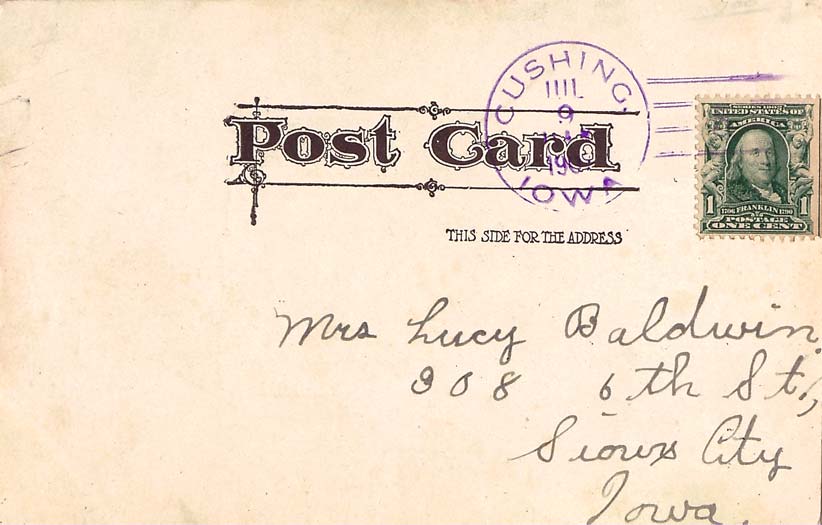 CUSHING,
9
190
IOWA
Post Card
THIS SIDE FOR THE ADDRESS
SERIES 1902
UNITED STATES OF
AMERICA
1 1706 FRANKLIN 1790 1
POSTAGE
ONE CENT
Mrs Lucy Baldwin,
308 6th St.,
Sioux City
Iowa.